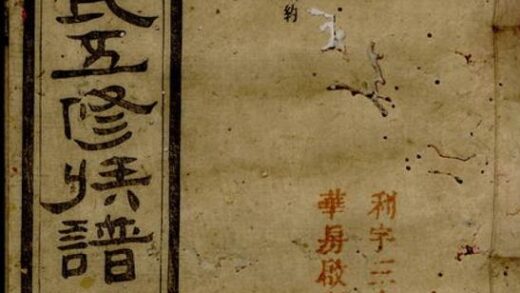 利字三
華房啟
約
氏五修族譜